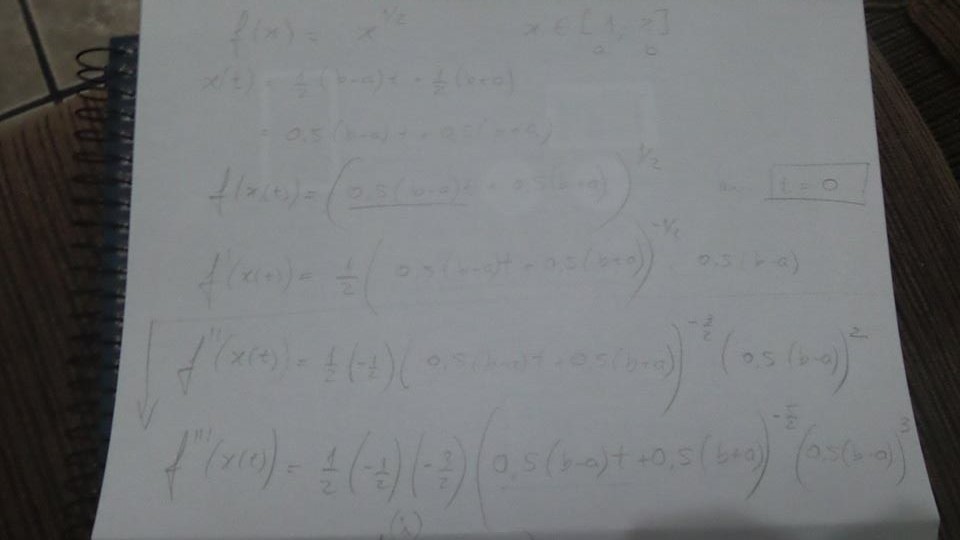 f(x) = x^{1/2} x ∈ [1, 2]
a b
x(t) = 1/2 (b-a)t + 1/2 (b+a)
= 0.5 (b-a)t + 0.5 (b+a)
f(x(t)) = (0.5(b-a)t + 0.5(b+a))^{1/2} t = 0
f'(x(t)) = 1/2 (0.5(b-a)t + 0.5(b+a))^{-1/2} 0.5(b-a)
f''(x(t)) = 1/2 (-1/2) (0.5(b-a)t + 0.5(b+a))^{-3/2} (0.5(b-a))^2
f'''(x(t)) = 1/2 (-1/2) (-3/2) (0.5(b-a)t + 0.5(b+a))^{-5/2} (0.5(b-a))^3
(i)